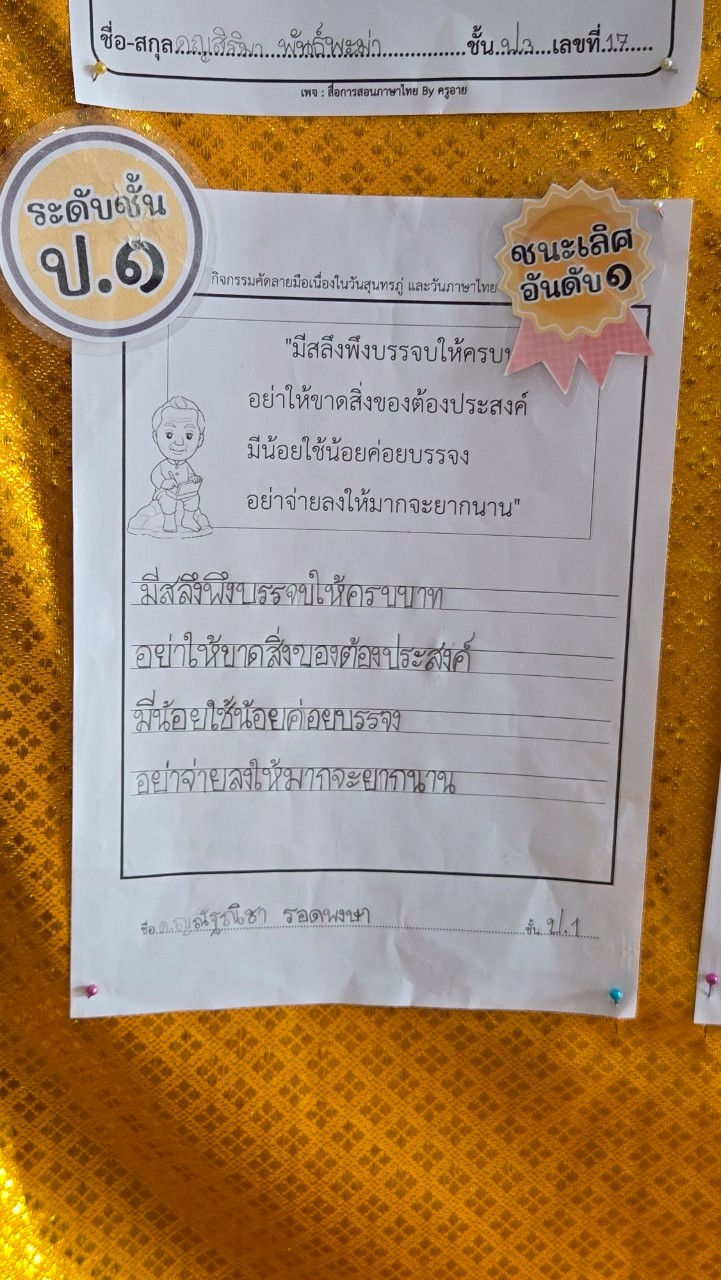 ชื่อ-สกุล ดญ.สิริมา พันธ์พะม่า ชั้น ป.๖ เลขที่ 17
เพจ : สื่อการสอนภาษาไทย By ครูอาย
ระดับชั้น
ป.๑
ชนะเลิศ
อันดับ๑
กิจกรรมคัดลายมือเนื่องในวันสุนทรภู่ และวันภาษาไทย
"มีสลึงพึงบรรจบให้ครบ
อย่าให้ขาดสิ่งของต้องประสงค์
มีน้อยใช้น้อยค่อยบรรจง
อย่าจ่ายลงให้มากจะยากนาน"
มีสลึงพึงบรรจบให้ครบบาท
อย่าให้ขาดสิ่งของต้องประสงค์
มีน้อยใช้น้อยค่อยบรรจง
อย่าจ่ายลงให้มากจะยากนาน
ชื่อ ด.ญ.ณัฐณิชา รอดพงษา ชั้น ป.1